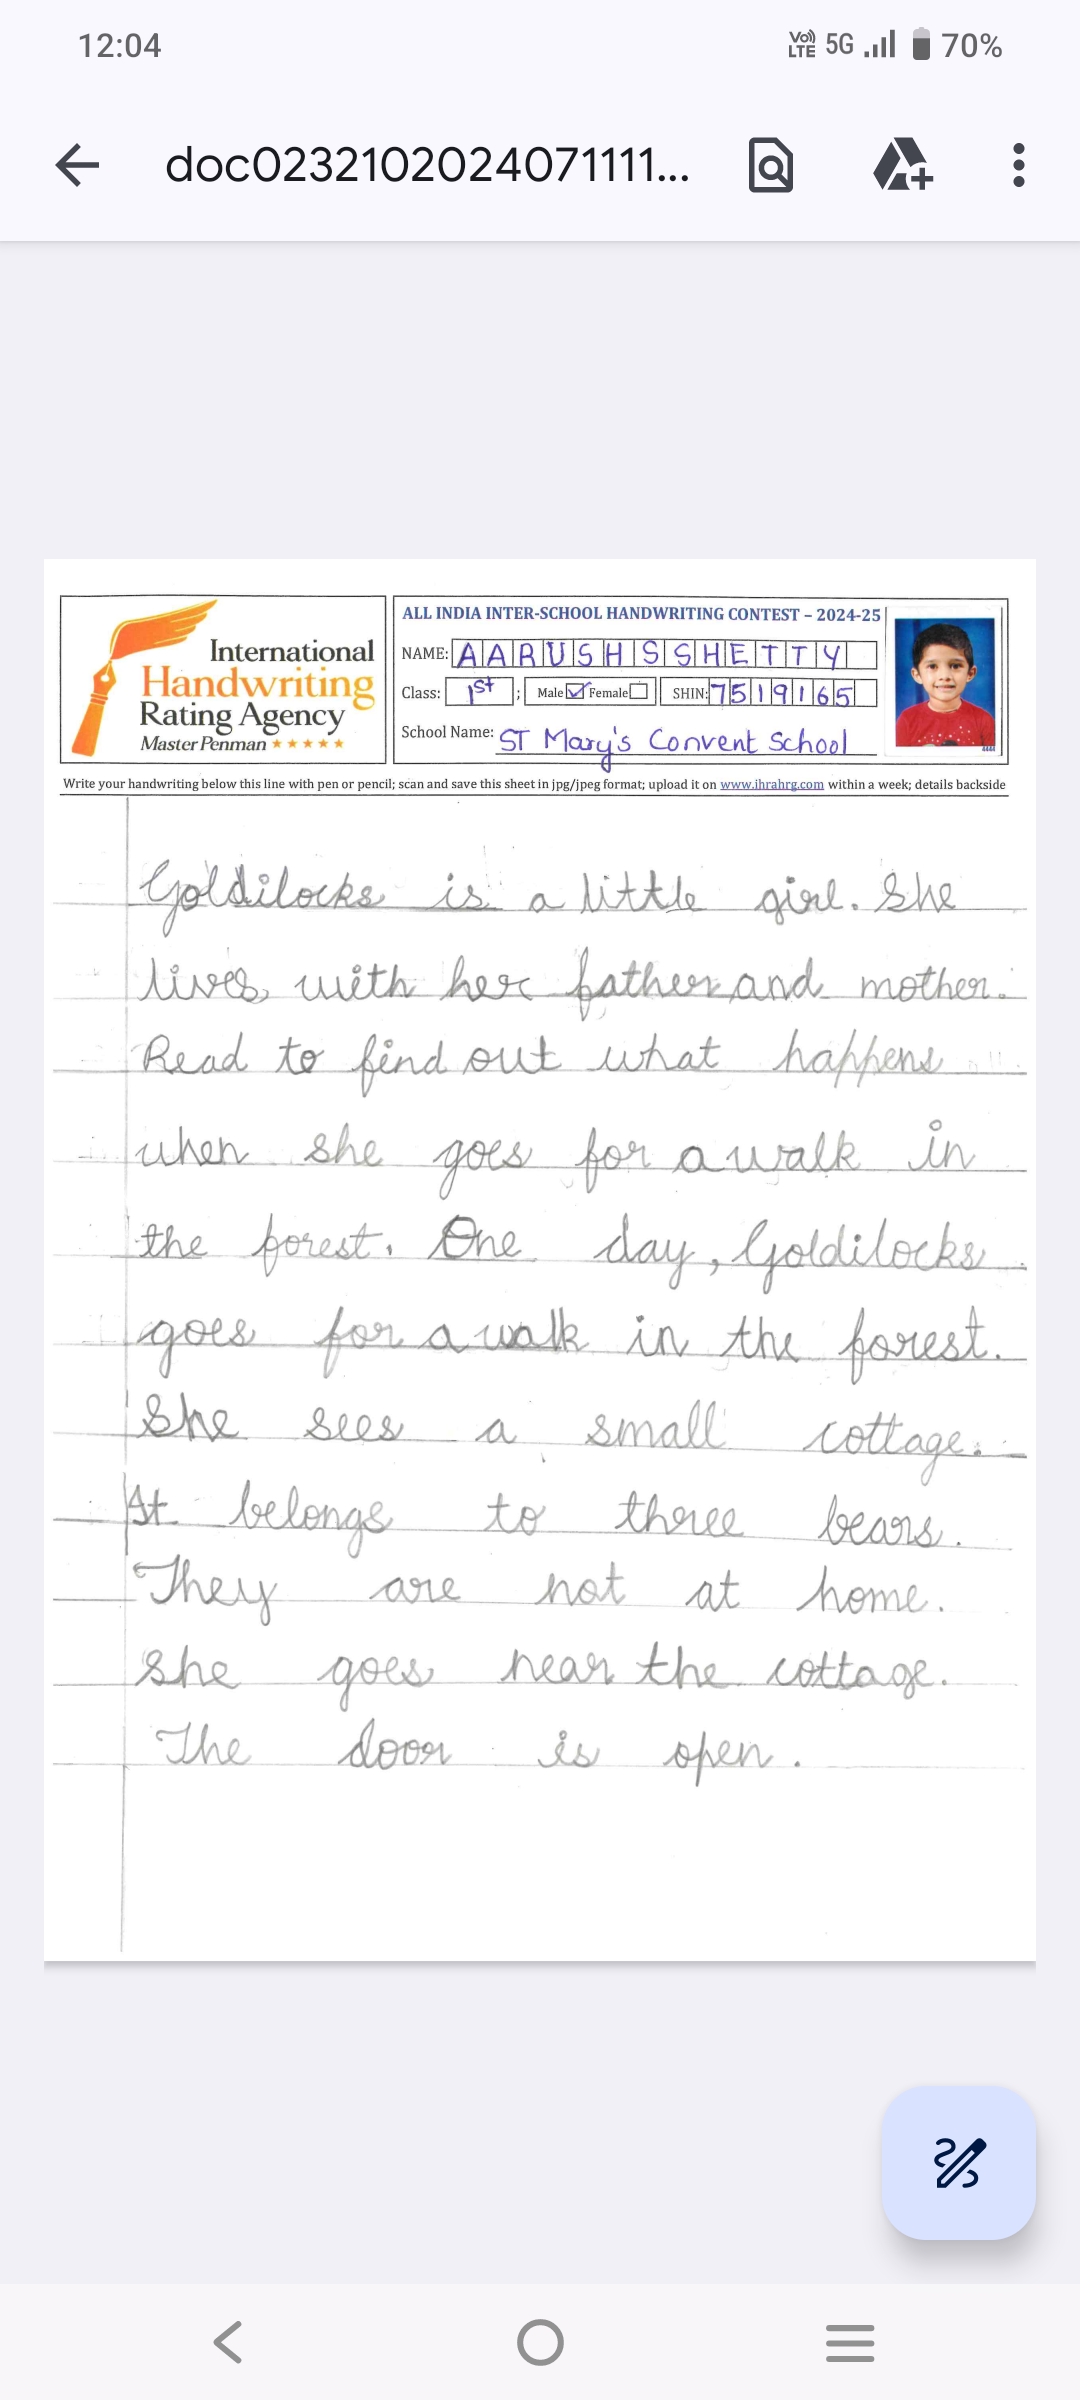 12:04
Vo)) LTE 5G 70%
doc0232102024071111...
International
Handwriting
Rating Agency
Master Penman ★★★★★
ALL INDIA INTER-SCHOOL HANDWRITING CONTEST – 2024-25
NAME: AARUSH S SHETTY
Class: 1st ; Male ☑ Female ☐ SHIN: 7519165
School Name: ST Mary's Convent School
Write your handwriting below this line with pen or pencil; scan and save this sheet in jpg/jpeg format; upload it on www.ihrahrg.com within a week; details backside
Goldilocks is a little girl. She
lives, with her father and mother.
Read to find out what happens
when she goes for a walk in
the forest. One day, Goldilocks
goes for a walk in the forest.
She sees a small cottage.
It belongs to three bears.
They are not at home.
She goes near the cottage.
The door is open.